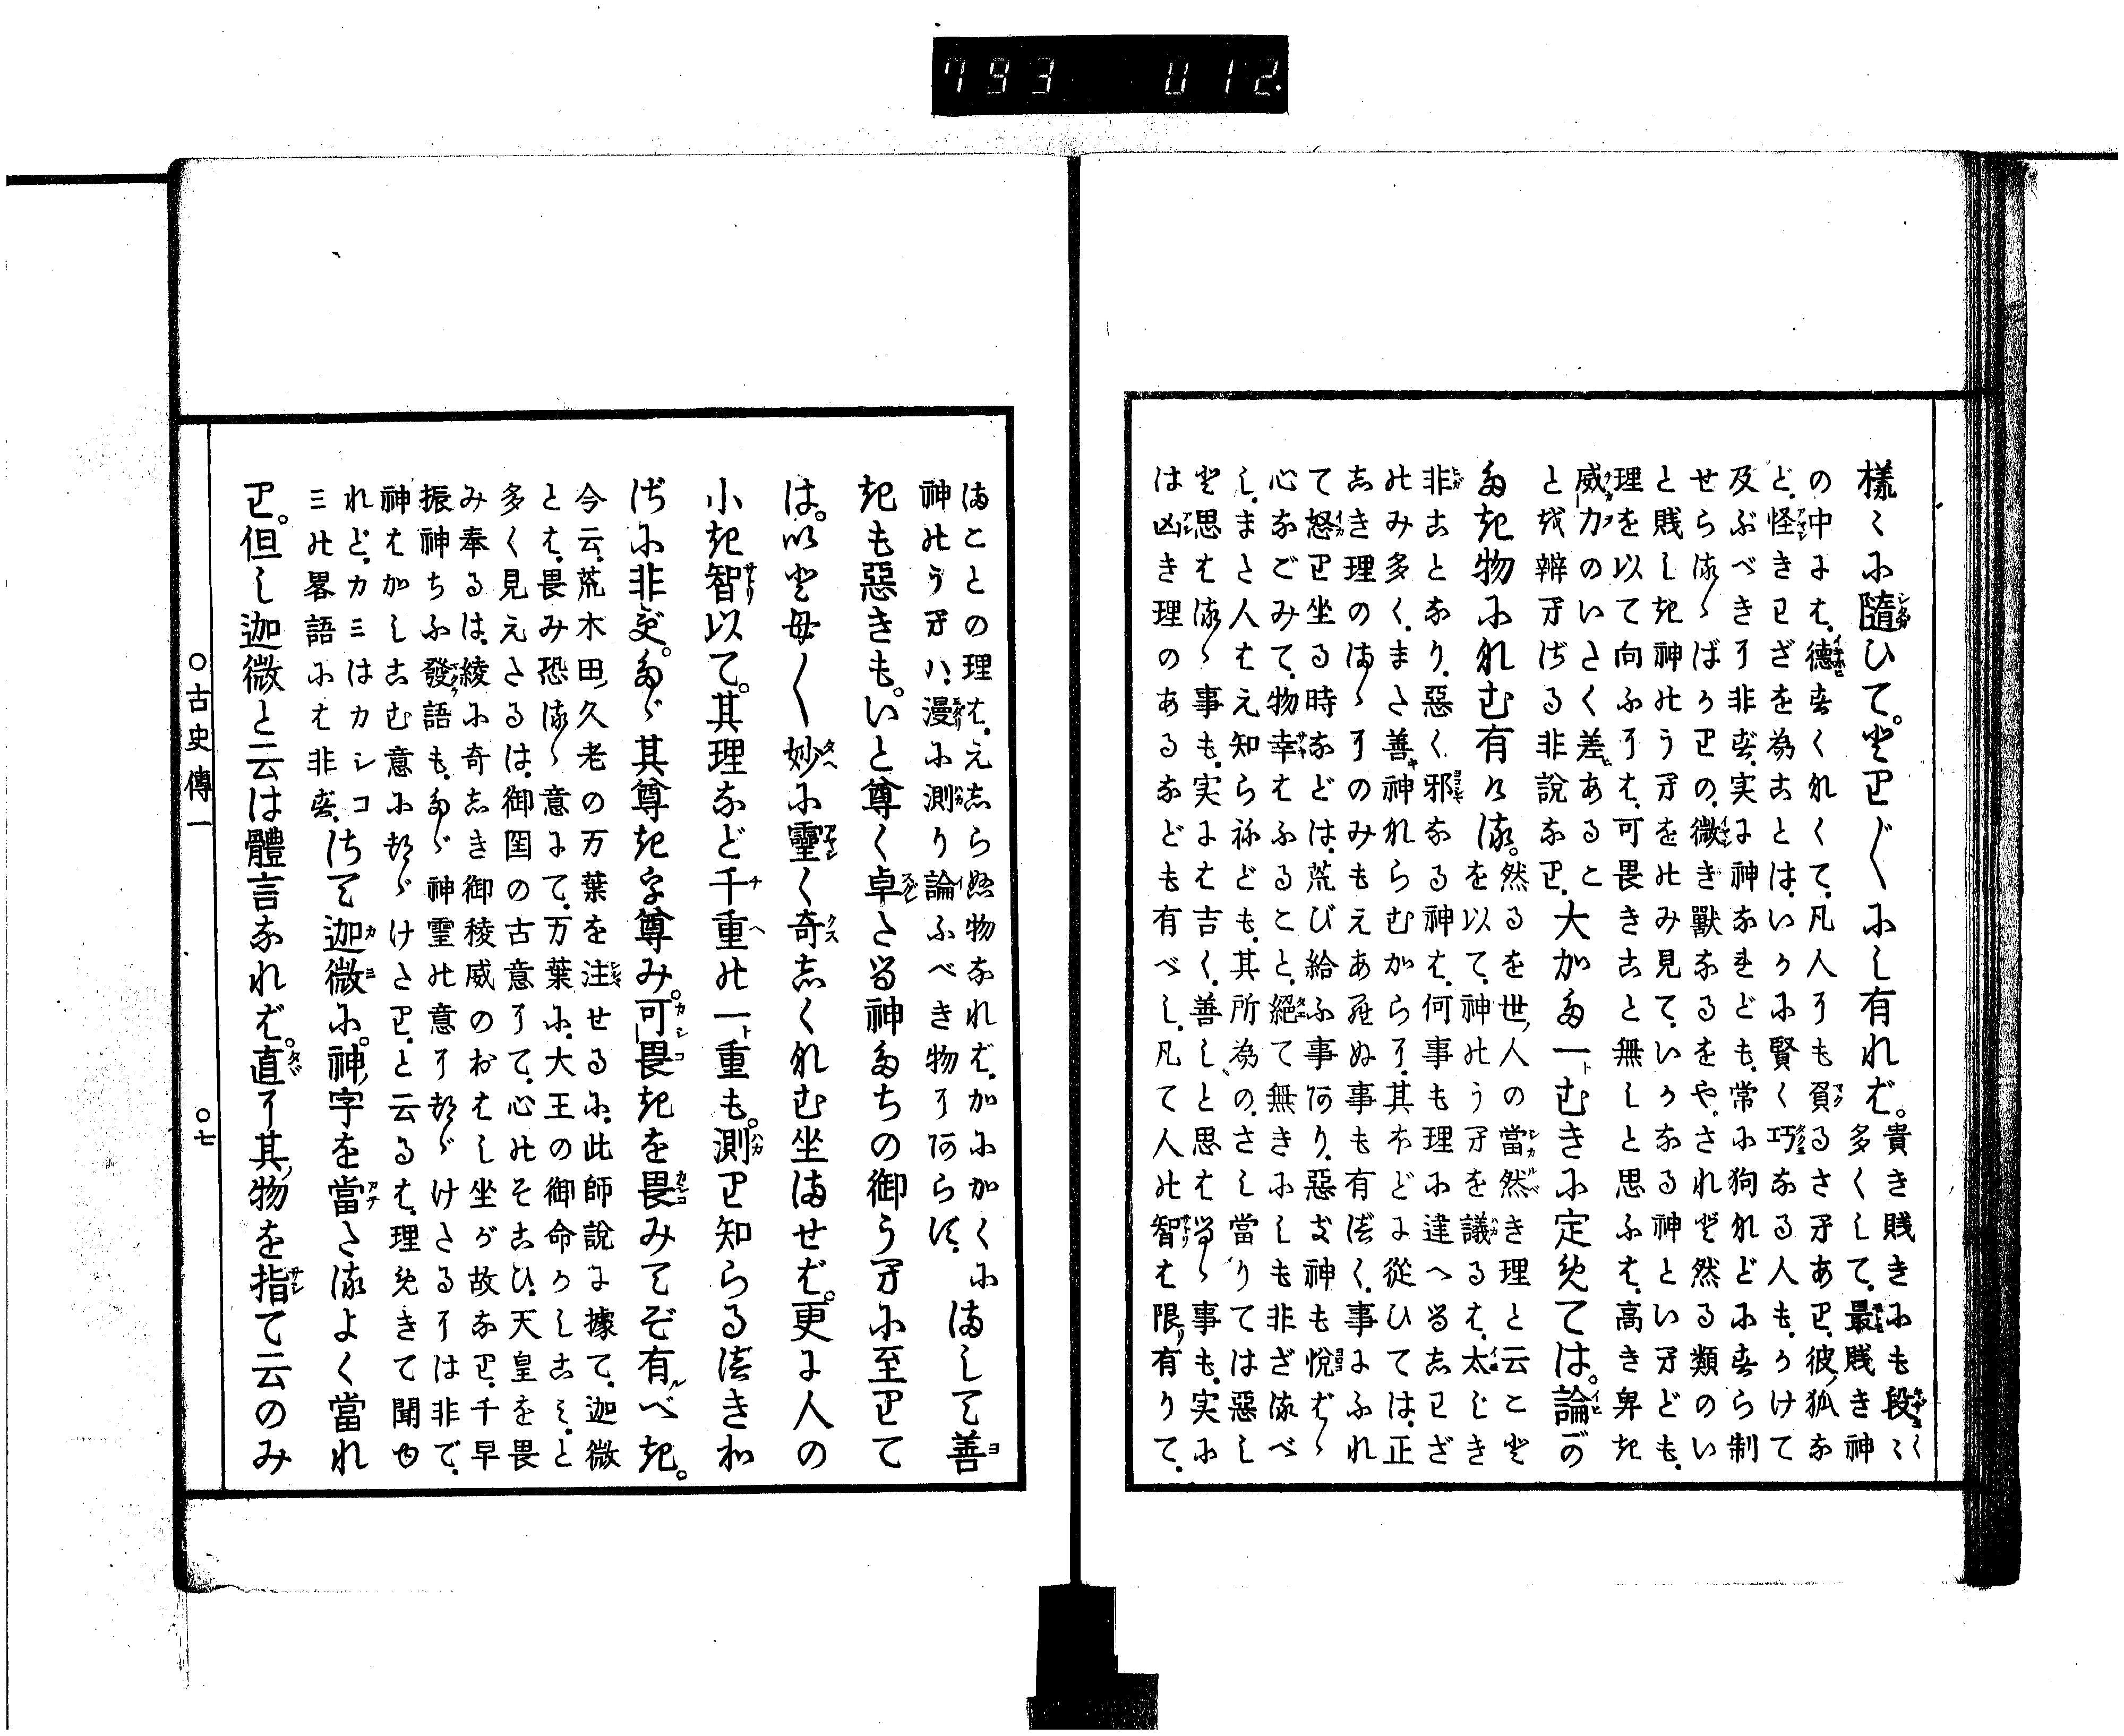 樣〱に隨ひて。とり〴〵にし有れば。貴き賤きにも段〻く
多くして、最賤き神
の中には、德すくなくて、凡人にも負るさへあり、彼狐な
ど、怪きわざを爲ことは、いかに賢く巧なる人も、かけて
及ぶべきに非ず、実に神なれども、常に狗などにすら制
せらるゝばかりの、微き獸なるをや、されど然る類のい
と賤しき神のうへをのみ見て、いかなる神といへども、
理を以て向ふには、可畏きこと無しと思ふは、高き卑き
威力のいさく差あるこ
とを辨へざる非說なり、大かた一むきに定めては。論が
たき物になむ有ける。然るを世人の當然き理と云こと
を以て、神のうへを議るは、太じき
非ことなり、惡く邪なる神は、何事も理に違へるしわざ
のみ多く、また善神ならむからに、其ほどに從ひては、正
しき理のまゝにのみもえあらぬ事も有べく、事にふれ
て怒り坐る時などは、荒び給ふ事あり、惡き神も悅ばゝ
心なごみて、物幸はふること、絕て無きにしも非ざるべ
し、また人はえ知らねども、其所爲の、さし當りては惡し
と思はるゝ事も、実には吉く、善しと思はるゝ事も、実に
は凶き理のあるなども有べし、凡て人の智は限り有りて、
まことの理は、えしらぬ物なれば、かにかくに
神のうへハ、漫に測り論ふべき物にあらず、まして善
きも惡きも。いと尊く卓たる神たちの御うへに至りて
は。いとも〱妙に靈く奇しくなむ坐ませば。更に人の
小き智以て。其理など千重の一重も。測り知らるべきわ
ざに非ず。たゞ其尊きを尊み。可畏きを畏みてぞ有べき。
今云、荒木田久老の万葉を注せるに、此師說に據て、迦微
とは、畏み恐るゝ意にて、万葉に、大王の御命かしこミ、と
多く見えたるは、御国の古意にて、心のそこひ、天皇を畏
み奉るは、綾に奇しき御稜威のおはし坐が故なり、千早
振神ちふ發語も、たゞ神霊の意につゞけたるには非で、
神はかしこむ意につゞけたり、と云るは、理めきて聞ゆ
れど、カミはカシコ
ミの畧語には非ず、さて迦微に。神字を當たるよく當れ
り。但し迦微と云は體言なれば。直に其物を指て云のみ
○古史傳一 ○七
793 012.